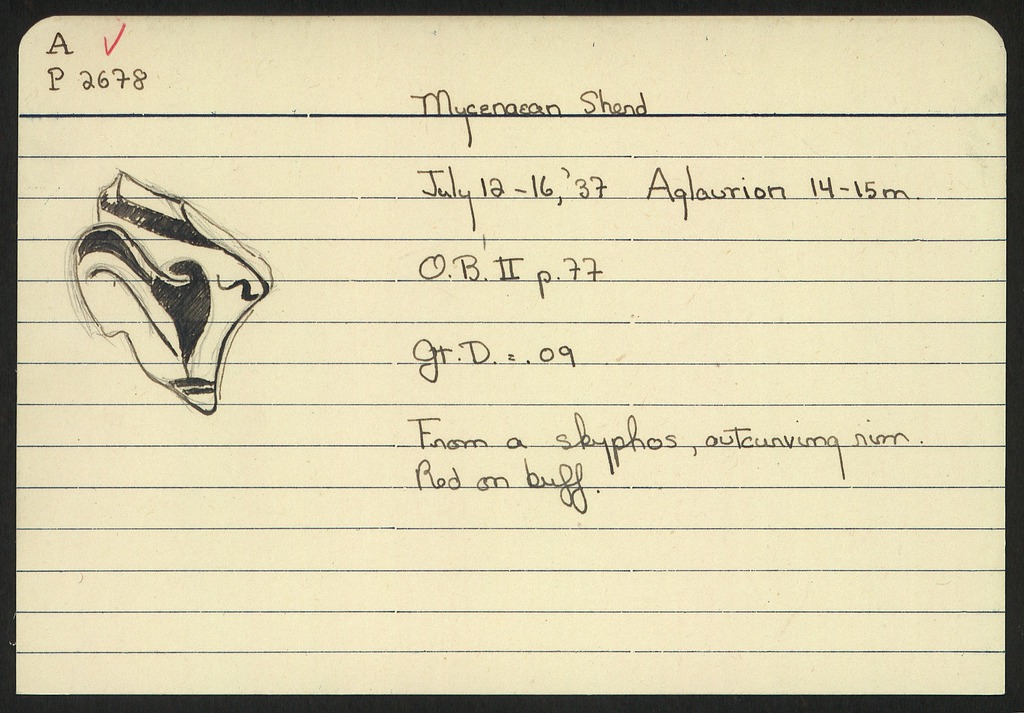 A ✓
P 2678
Mycenaean Sherd
July 12-16, '37 Aglaurion 14-15m.
O.B. II p.77
Gr. D. = .09
From a skyphos, outcurving rim.
Red on buff.